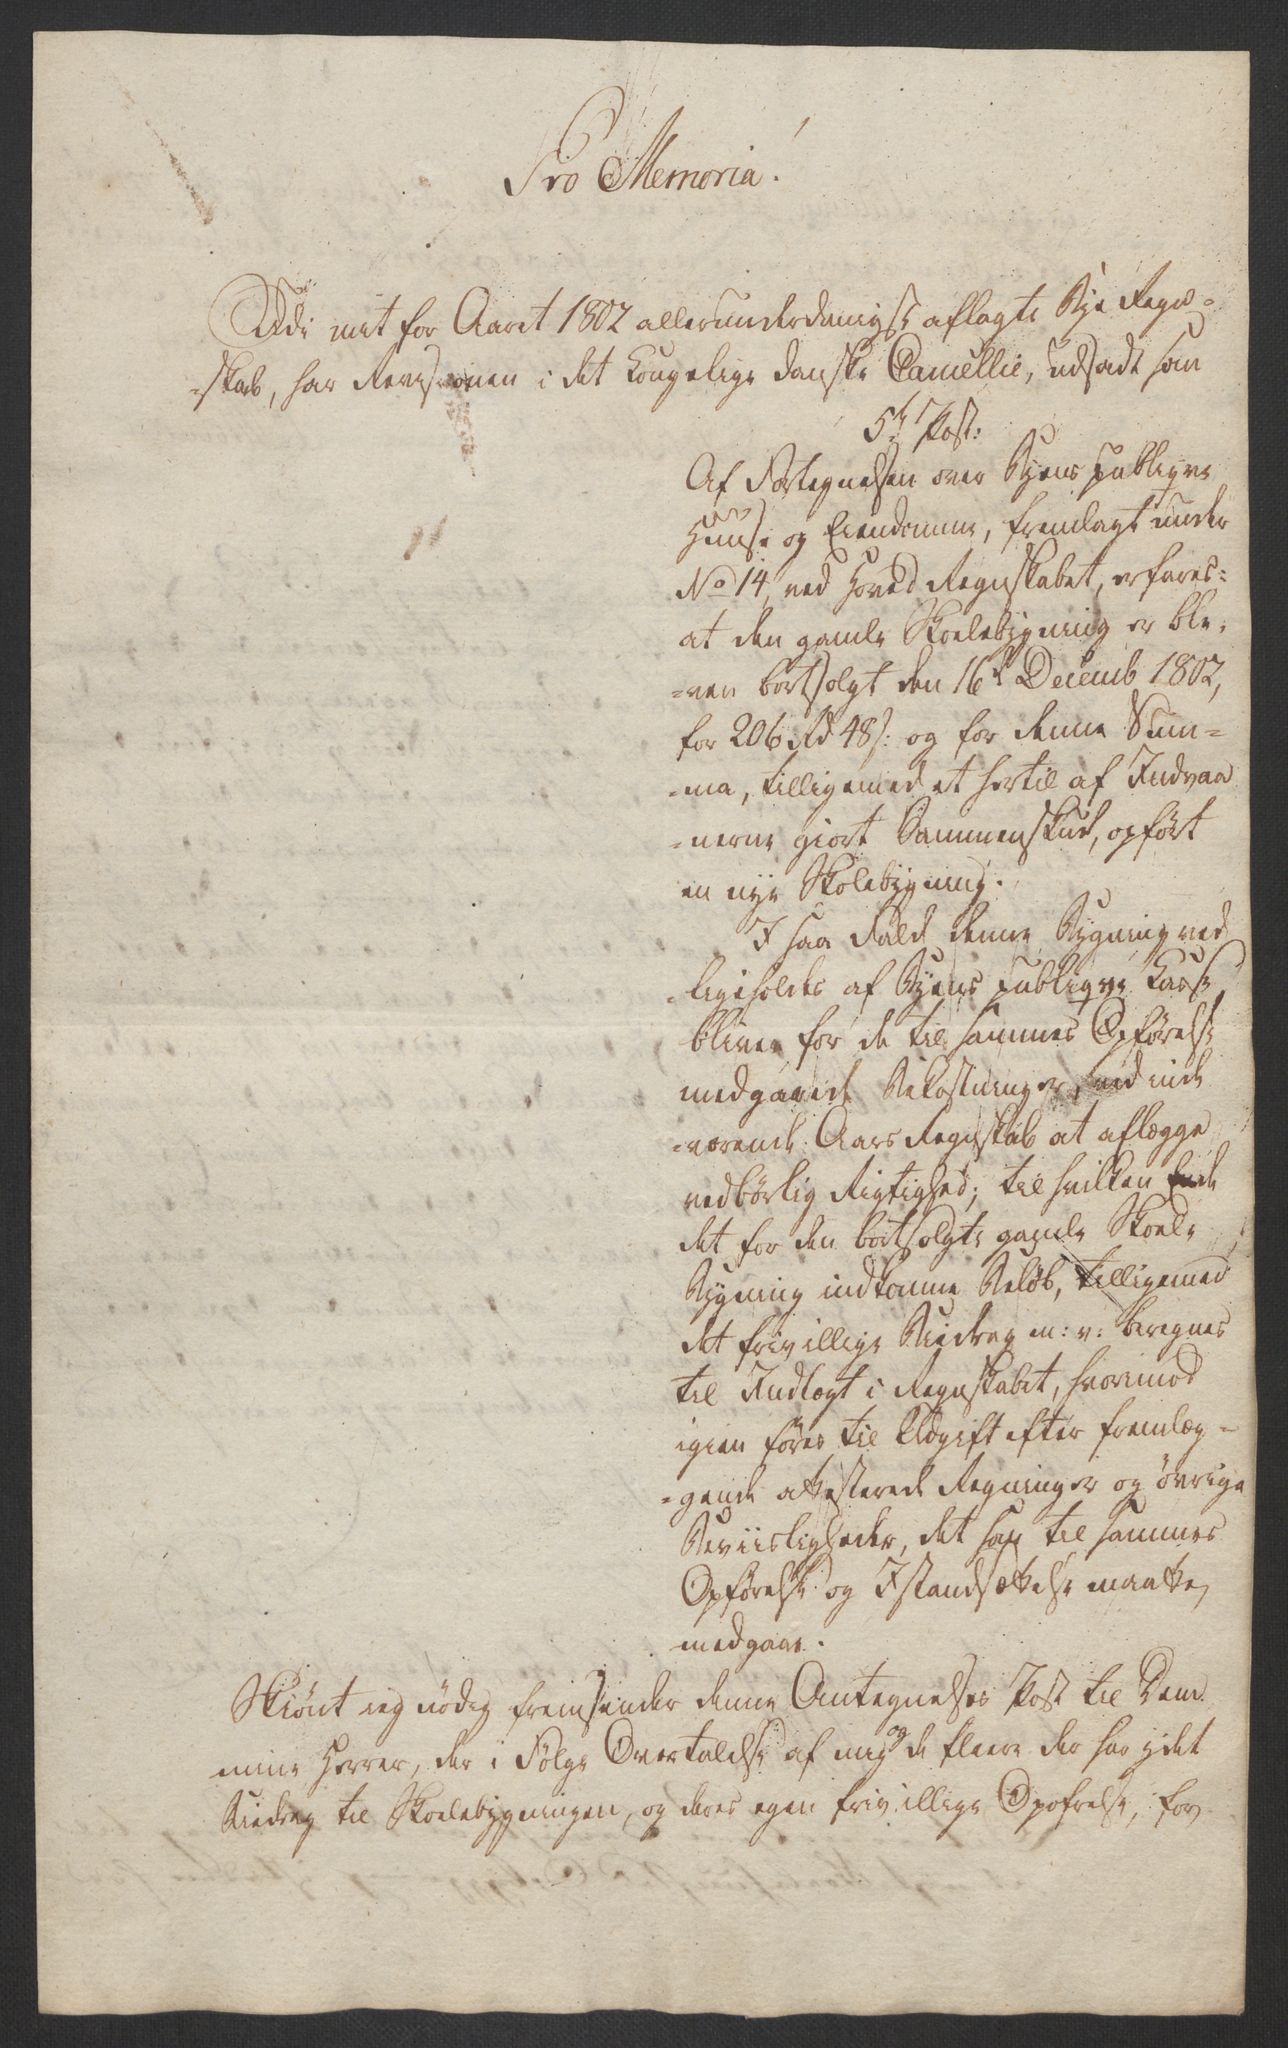 Pro Memoria!
Udi mit for Aaret 1802 allerunderdanigst aflagte Bye Regn-
-skab, har Revisionen i det Kongelige danske Cancellie, udsadt som
5te Post:
Af Fortegnelsen over Byens publiqve
Huuse og Eiendomme, fremlagt under
No 14, ved Hoved Regnskabet, erfares:
at den gamle Skolebygning er ble-
-ven bortsolgt den 16de Decemb 1802,
for 206 Rd 48 s: og for denne Sum-
-ma, tilligemed et hertil af Indvaa
-nerne giort Sammenskud, opført
en nye Skolebygning.
I saa Fald denne Bygning ved
-ligeholdes af Byens publiqve Casse
bliver for de til sammes Opførelse
medgaaede Bekostninger, ved inde
-værende Aars Regnskab at aflægge
vedbørlig Rigtighed; til hvilken Ende
det for den bortsolgte gamle Skole
Bygning indkomne Beløb, tilligemed
det frivillige Biedrag m: v: beregnes
til Indtægt i Regnskabet, hvorimod
igien føres til Udgift efter fremlæg-
-gende attesterede Regninger og øvrige
Beviisligheder, det som til sammes
Opførelse og Istandsættelse maatte
medgaae.
Skiønt ieg nødig fremsender denne Antegnelses Post til Dem
mine Herrer, der i Følge Overtalelse af mig og de fleere der har ydet
Biedrag til Skolebygningen, og deres egen frivillige Opofrelse, for